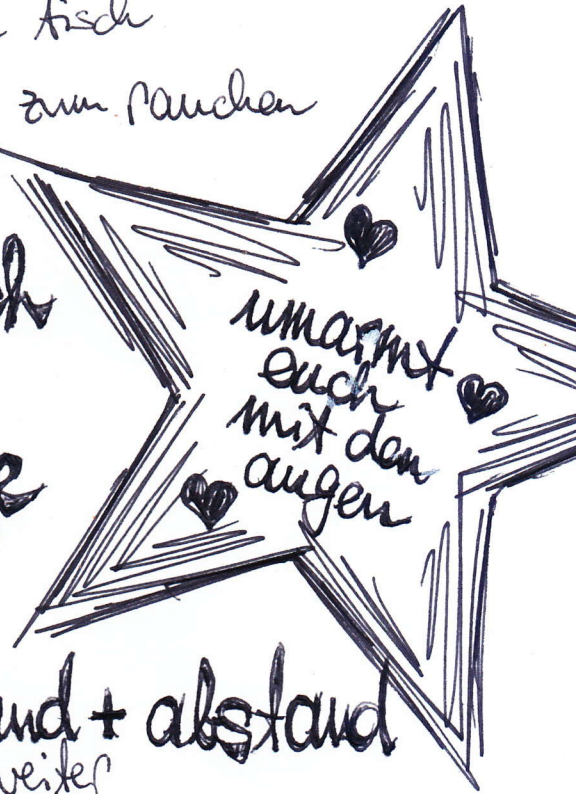 Tisch
zum rauchen
umarmt
euch
mit den
augen
+ abstand